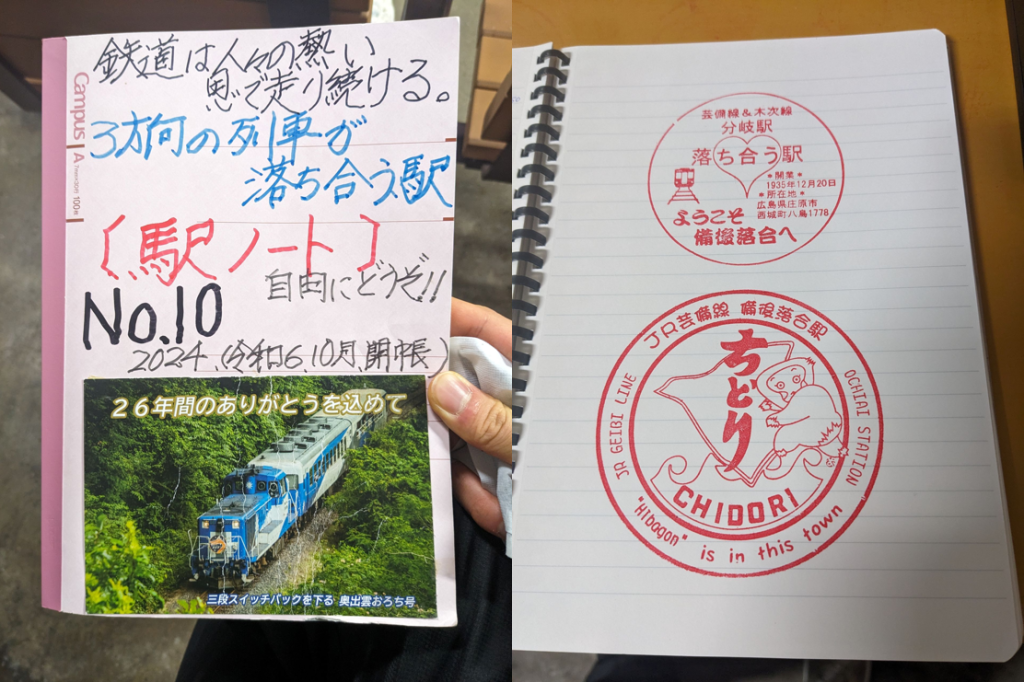 鉄道は人々の熱い
思で走り続ける。
3方向の列車が
落ち合う駅
〔駅ノート〕
自由にどうぞ!!
No.10
2024.(令和6.10月.開帳)
Campus
A 7mm×30行 100枚
26年間のありがとうを込めて
三段スイッチバックを下る 奥出雲おろち号
芸備線&木次線
分岐駅
落ち合う駅
*開業*
1935年12月20日
*所在地*
広島県庄原市
西城町八鳥1778
ようこそ
備後落合へ
JR芸備線 備後落合駅
JR GEIBI LINE
OCHIAI STATION
ちどり
CHIDORI
"Hibagon" is in this town